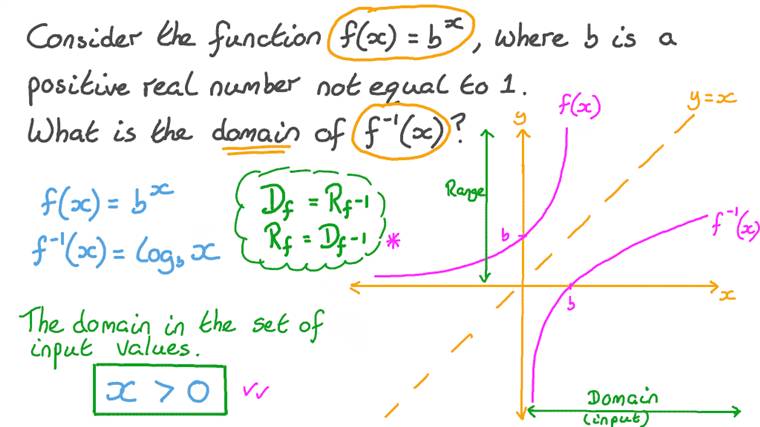 Consider the function f(x) = b^x, where b is a
positive real number not equal to 1.
What is the domain of f⁻¹(x)?
f(x) = b^x
f⁻¹(x) = log_b x
D_f = R_f⁻¹
R_f = D_f⁻¹ *
The domain in the set of
input values.
x > 0 ✓✓
y
f(x)
y = x
Range
b
f⁻¹(x)
b
x
Domain
(input)